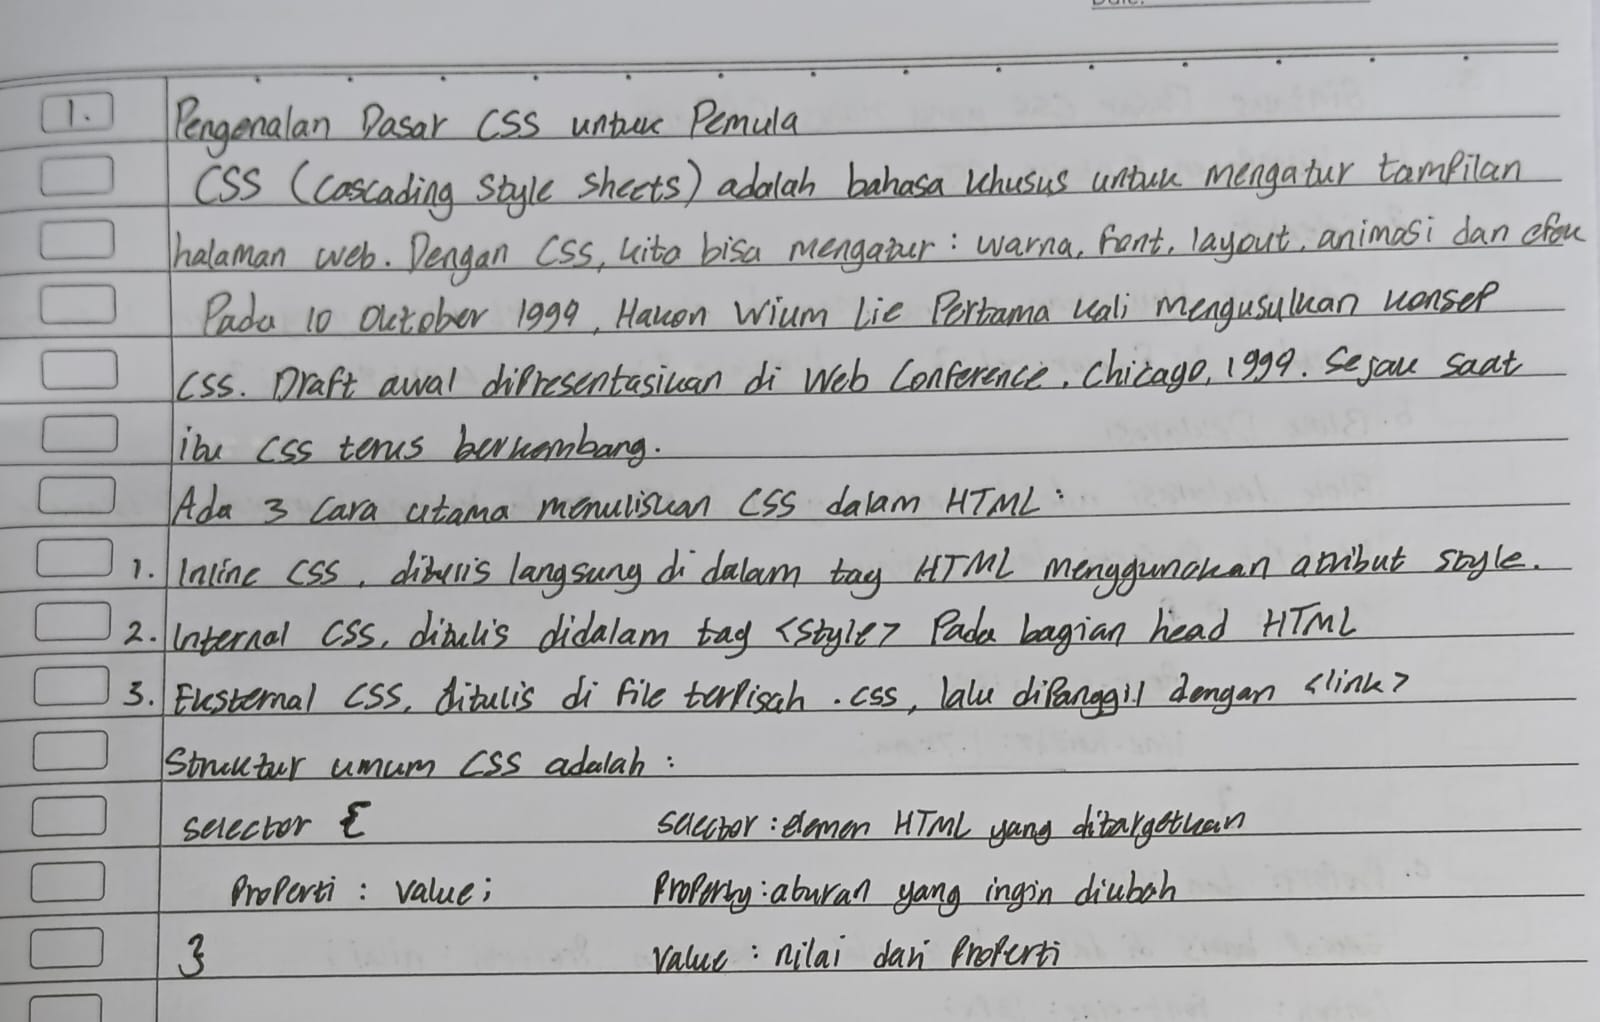 1. Pengenalan Dasar CSS untuk Pemula
CSS (Cascading Style Sheets) adalah bahasa khusus untuk mengatur tampilan
halaman web. Dengan CSS, kita bisa mengatur : warna, font, layout, animasi dan efek
Pada 10 Oktober 1999, Hakon Wium Lie Pertama kali mengusulkan konsep
CSS. Draft awal dipresentasikan di Web Conference, Chicago, 1999. Sejak saat
itu CSS terus berkembang.
Ada 3 Cara utama menuliskan CSS dalam HTML :
1. Inline CSS, ditulis langsung di dalam tag HTML menggunakan atribut style.
2. Internal CSS, ditulis didalam tag <style> Pada bagian head HTML
3. Eksternal CSS, ditulis di file terpisah .css, lalu dipanggil dengan <link>
Struktur umum CSS adalah :
selector { selector : elemen HTML yang ditargetkan
Properti : value; Property : aturan yang ingin diubah
} Value : nilai dari Properti